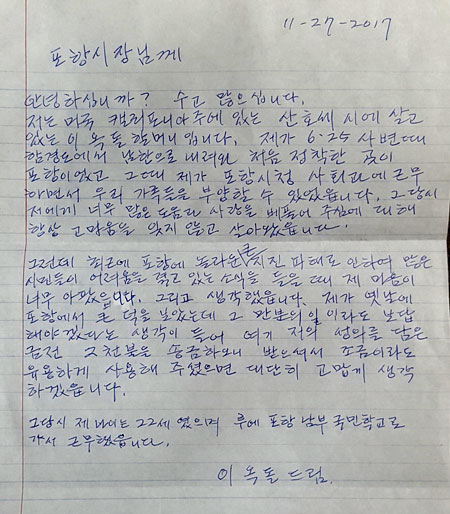 11-27-2017
포항시장님께
안녕하십니까? 수고 많으십니다.
저는 미국 캘리포니아주에 있는 산호세 시에 살고
있는 이옥돌 할머니 입니다. 제가 6.25 사변때
함경도에서 남한으로 내려와 처음 정착한 곳이
포항이었고 그때 제가 포항시청 사회과에 근무
하면서 우리 가족들을 부양할 수 있었읍니다. 그당시
저에게 너무 많은 도움과 사랑을 베풀어 주심에 대해
항상 고마움을 잊지 않고 살아왔읍니다.
그런데 최근에 포항에 놀라운 큰 지진 피해로 인하여 많은
시민들이 어려움을 겪고 있는 소식을 들을 때 제 마음이
너무 아팠읍니다. 그리고 생각했읍니다. 제가 옛날에
포항에서 큰 덕을 보았는데 그 만분의 일이라도 보답
해야겠다는 생각이 들어 여기 저의 성의를 담은
금전 2천불을 송금하오니 받으셔서 조금이라도
유용하게 사용해 주셨으면 대단히 고맙게 생각
하겠읍니다.
그당시 제 나이는 22세 였으며 후에 포항 남부 국민학교로
가서 근무했읍니다.
이 옥돌 드림.